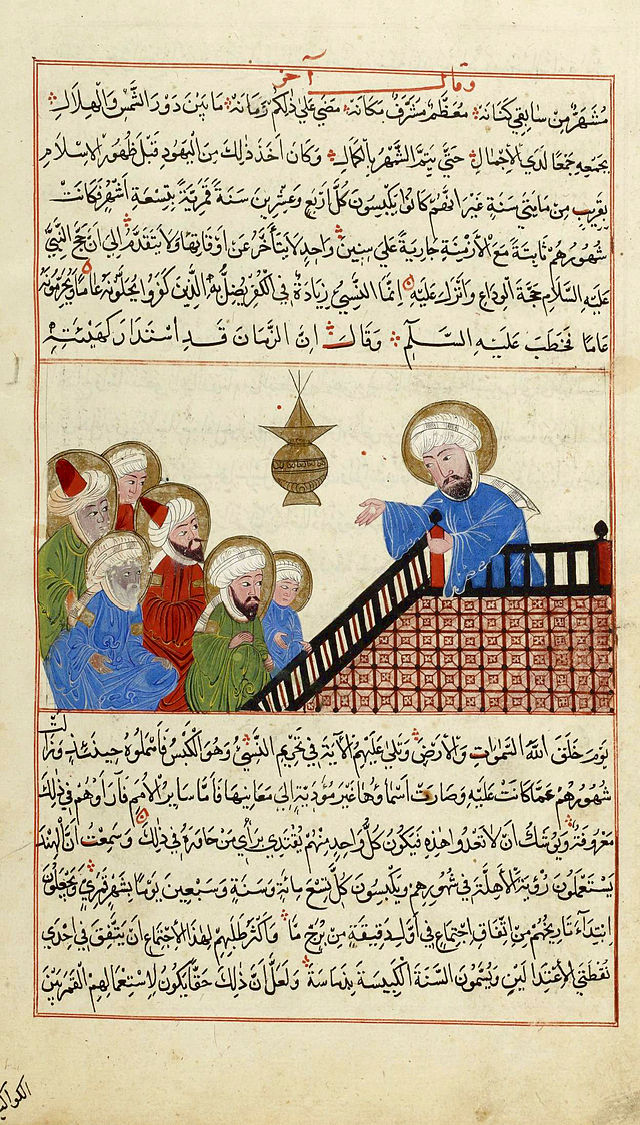 وقال آخر
مُشَهَّرٌ من سابقي كنانه معظم مشرف مكانه مضى على ذلكم زمانه ما بين دور الشمس والهلال
يجمعه جمعا لدي الاجمال حتي يتم الشهر بالكمال وكان اخذ ذلك من اليهود قبل ظهور الاسلام
بقريب من مايتي سنة غير انهم كانوا يكبسون كل اربع وعشرين سنة قمرية بتسعة اشهر فكانت
شهورهم ثابتة مع الازمنة جارية علي سنين واحد لا يتأخر عن اوقاتها ولا يتقدم الي ان حج النبي
عليه السلام حجة الوداع وانزل عليه انما النسيء زيادة في الكفر يضل به الذين كفروا يحلونه عاما ويحرمونه
عاما فخطب عليه السلام وقال ان الزمان قد استدار كهيئته
يوم خلق الله السموات والارض وتلي عليهم الآية في تحريم النسيء وهو الكبس فاهملوه حينئذ وزالت
شهورهم عما كانت عليه وصارت اسماؤها غير مؤدية الي معانيها فاما ساير الامم فآراؤهم في ذلك
معروفة ويوشك ان لا تعدوا هذه فيكون كل واحد منهم يقتدي برأي من في ذلك وسمعت ان الهند
يستعملون رؤية الاهلة في شهورهم ويكبسون كل تسع مائة وسنة وسبعين يوما بشهر قمري ويجعلون
ابتداء تاريخهم من اتفاق اجتماع في اول دقيقة من برج ما واكثر طلبهم لهذا الاجتماع ان يتفق في احدي
نقطتي الاعتدالين ويسمون السنة الكبيسة بذماسة ولعل ان ذلك حقا يكون لاستعمالهم القمر من بين
الكواكب